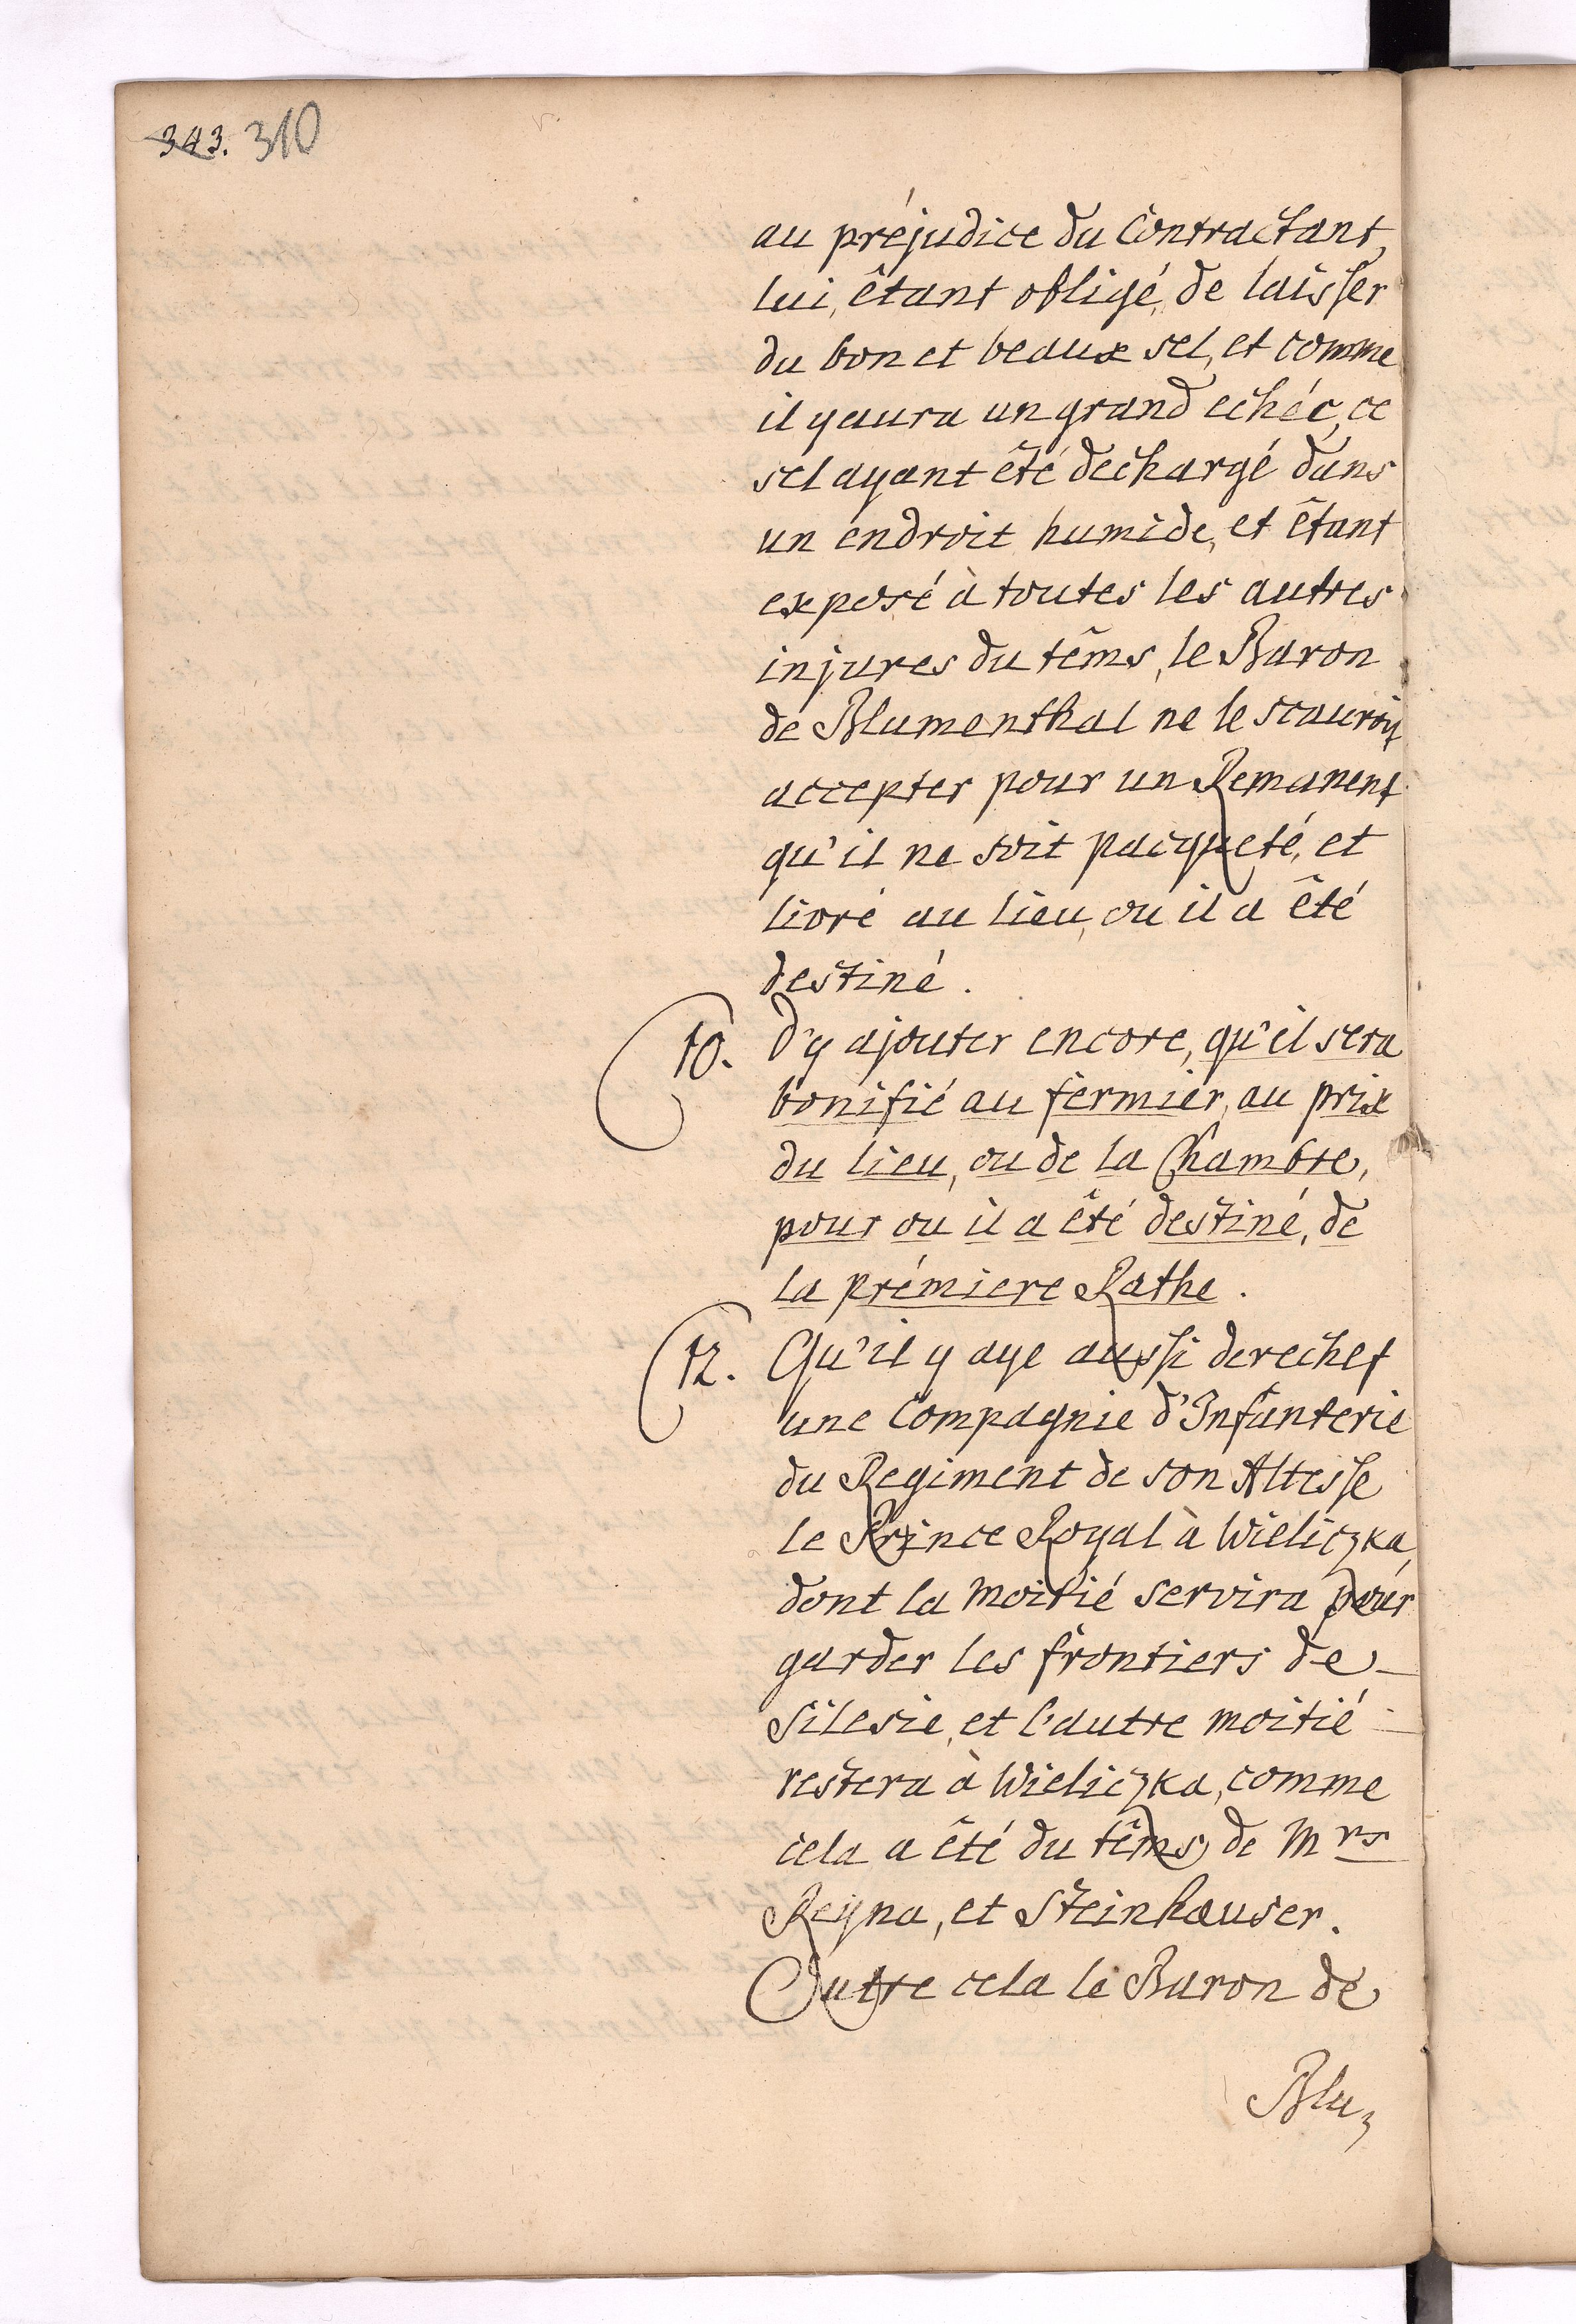 343. 310
au préjudice du Contractant,
lui, êtant obligé, de laisser
du bon et beaux sel, et comme
il y aura un grand echéc, ce
sel ayant êté dechargé dans
un endroit humide, et êtant
exposé à toutes les autres
injures du têms, le Baron
de Blumenthal ne le scauroit
accepter pour un Remanent
qu'il ne soit pacqueté, et
livré au lieu, ou il a êté
destiné.
10. D'y ajouter encore, qu'il sera
bonifié au fermier, au prix
du lieu, ou de la Chambre,
pour ou il a êté destiné, de
la prémiere Rathe.
12. Qu'il y aye aussi derechef
une Compagnie d'Infanterie
du Regiment de son Altesse
le Prince Royal à Wieliczka,
dont la moitié servira pour
garder les frontiers de
Silesie, et l'autre moitié
restera à Wieliczka, comme
cela a êté du têms de Mrs
Reyna, et Steinhauser.
Outre cela le Baron de
Blu